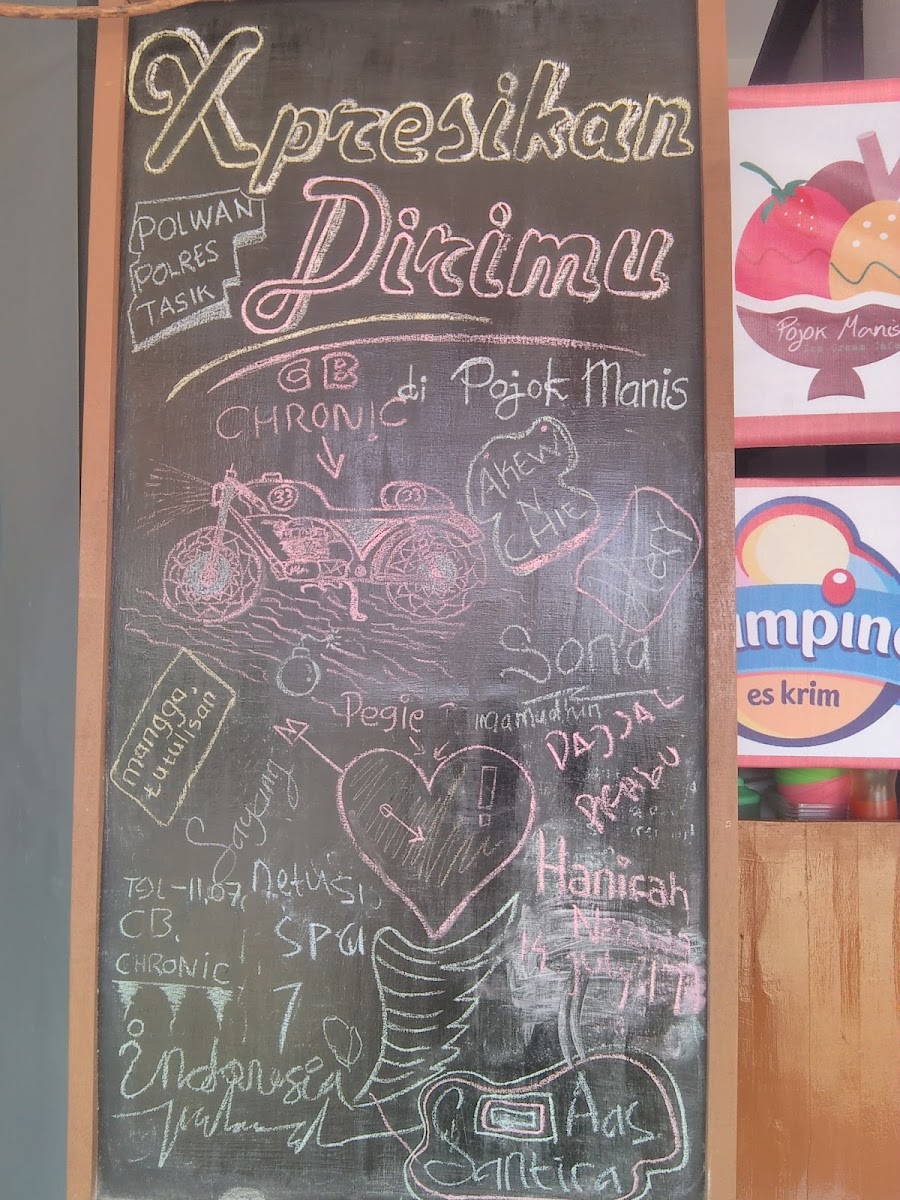 Xpresikan
Dirimu
POLWAN
POLRES
TASIK
di Pojok Manis
CB
CHRONIC
33
33
AKEW
N
CHIE
Hery
Sona
mangga,
tutulisan
Pegie
mamudhin
DAJJAL
Sayang
!
Hanifah
TGL-11,07,
CB.
CHRONIC
SPA
7
Indonesia
Aas
Santica
Pojok Manis
Ice Cream Cafe
ampina
es krim